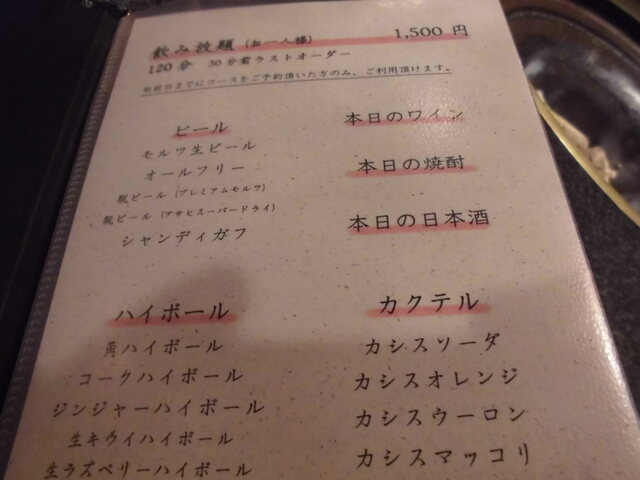 飲み放題 (お一人様) 1,500 円
120 分 30 分前ラストオーダー
※前日までにコースをご予約頂いた方のみ、ご利用頂けます。
ビール
モルツ生ビール
オールフリー
瓶ビール (プレミアムモルツ)
瓶ビール (アサヒスーパードライ)
シャンディガフ
本日のワイン
本日の焼酎
本日の日本酒
ハイボール
角ハイボール
コークハイボール
ジンジャーハイボール
生キウイハイボール
生ラズベリーハイボール
カクテル
カシスソーダ
カシスオレンジ
カシスウーロン
カシスマッコリ